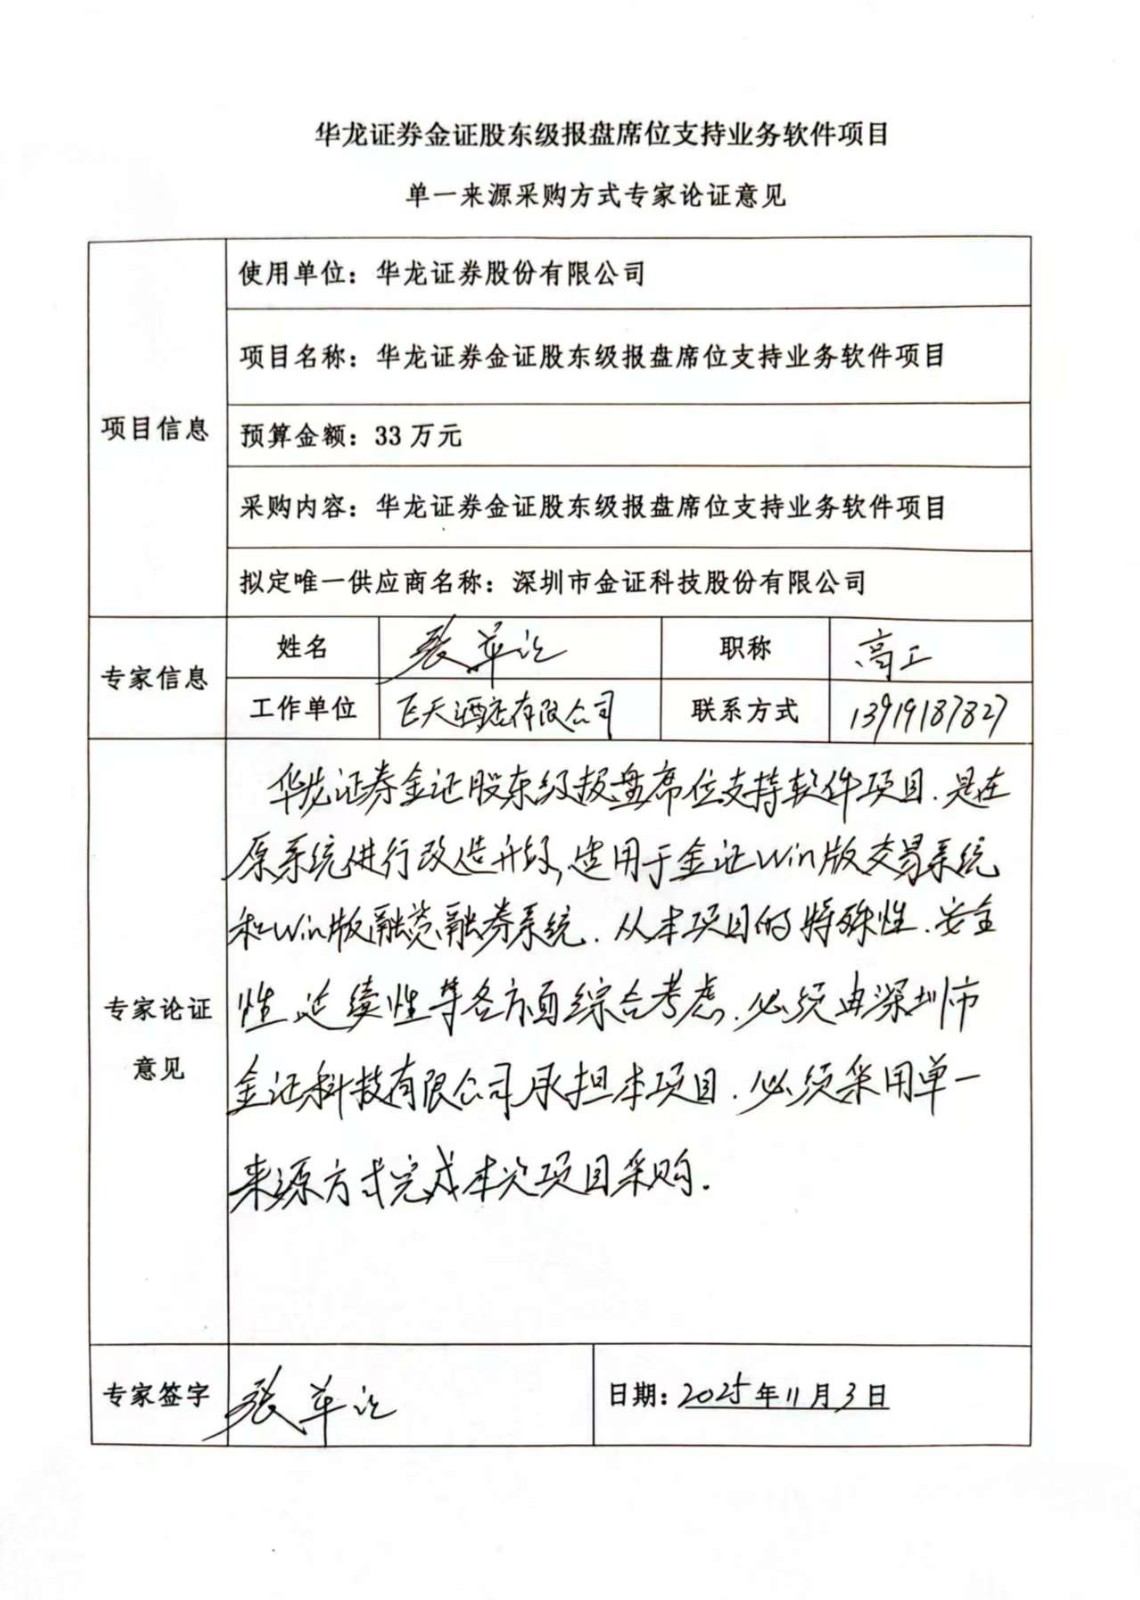 华龙证券金证股东级报盘席位支持业务软件项目
单一来源采购方式专家论证意见
项目信息
使用单位：华龙证券股份有限公司
项目名称：华龙证券金证股东级报盘席位支持业务软件项目
预算金额：33 万元
采购内容：华龙证券金证股东级报盘席位支持业务软件项目
拟定唯一供应商名称：深圳市金证科技股份有限公司
专家信息
姓名 张革 职称 高工
工作单位 飞天酒店有限公司 联系方式 13919187827
专家论证
意见
华龙证券金证股东级报盘席位支持软件项目.是在
原系统进行改造升级,适用于金证Win版交易系统
和Win版融资融券系统.从本项目的特殊性.安全
性.延续性等各方面综合考虑.必须由深圳市
金证科技有限公司承担本项目.必须采用单一
来源方式完成本次项目采购.
专家签字 张革
日期：2025年11月3日